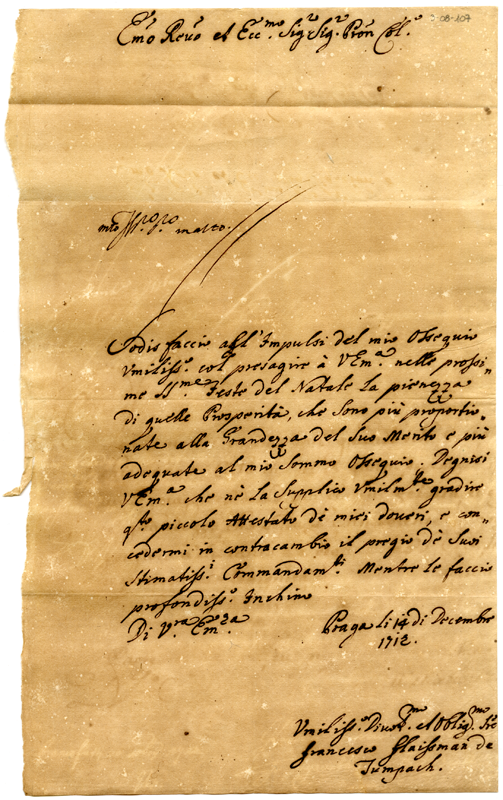 3-08-107
Emo Revo et Eccmo. Sigre Sigr. Pron Col.o
molto.
Sodisfaccio all'Impulsi del mio Ossequio
Umiliss.o col presagire à VEm.a nelle prossi„
me SS.me Feste del Natale la pienezza
di quelle Prosperità, che sono più proportio„
nate alla Grandezza del Suo Merito e più
adequate al mio Sommo Ossequio. Degnisi
VEm.a che nè la Supplico Umilm.te gradire
q.sto piccolo Attestato dè miei doveri, e con„
cedermi in contracambio il pregio dè Suoi
Stimatiss.i Commandam.ti Mentre le faccio
profondiss.o Inchino
Di V.ra Em.za
Praga li 14 di Decembre
1712.
Umiliss.o Divot.mo et Oblig.mo Sre
Francesco Glaissman de
Tumpach.